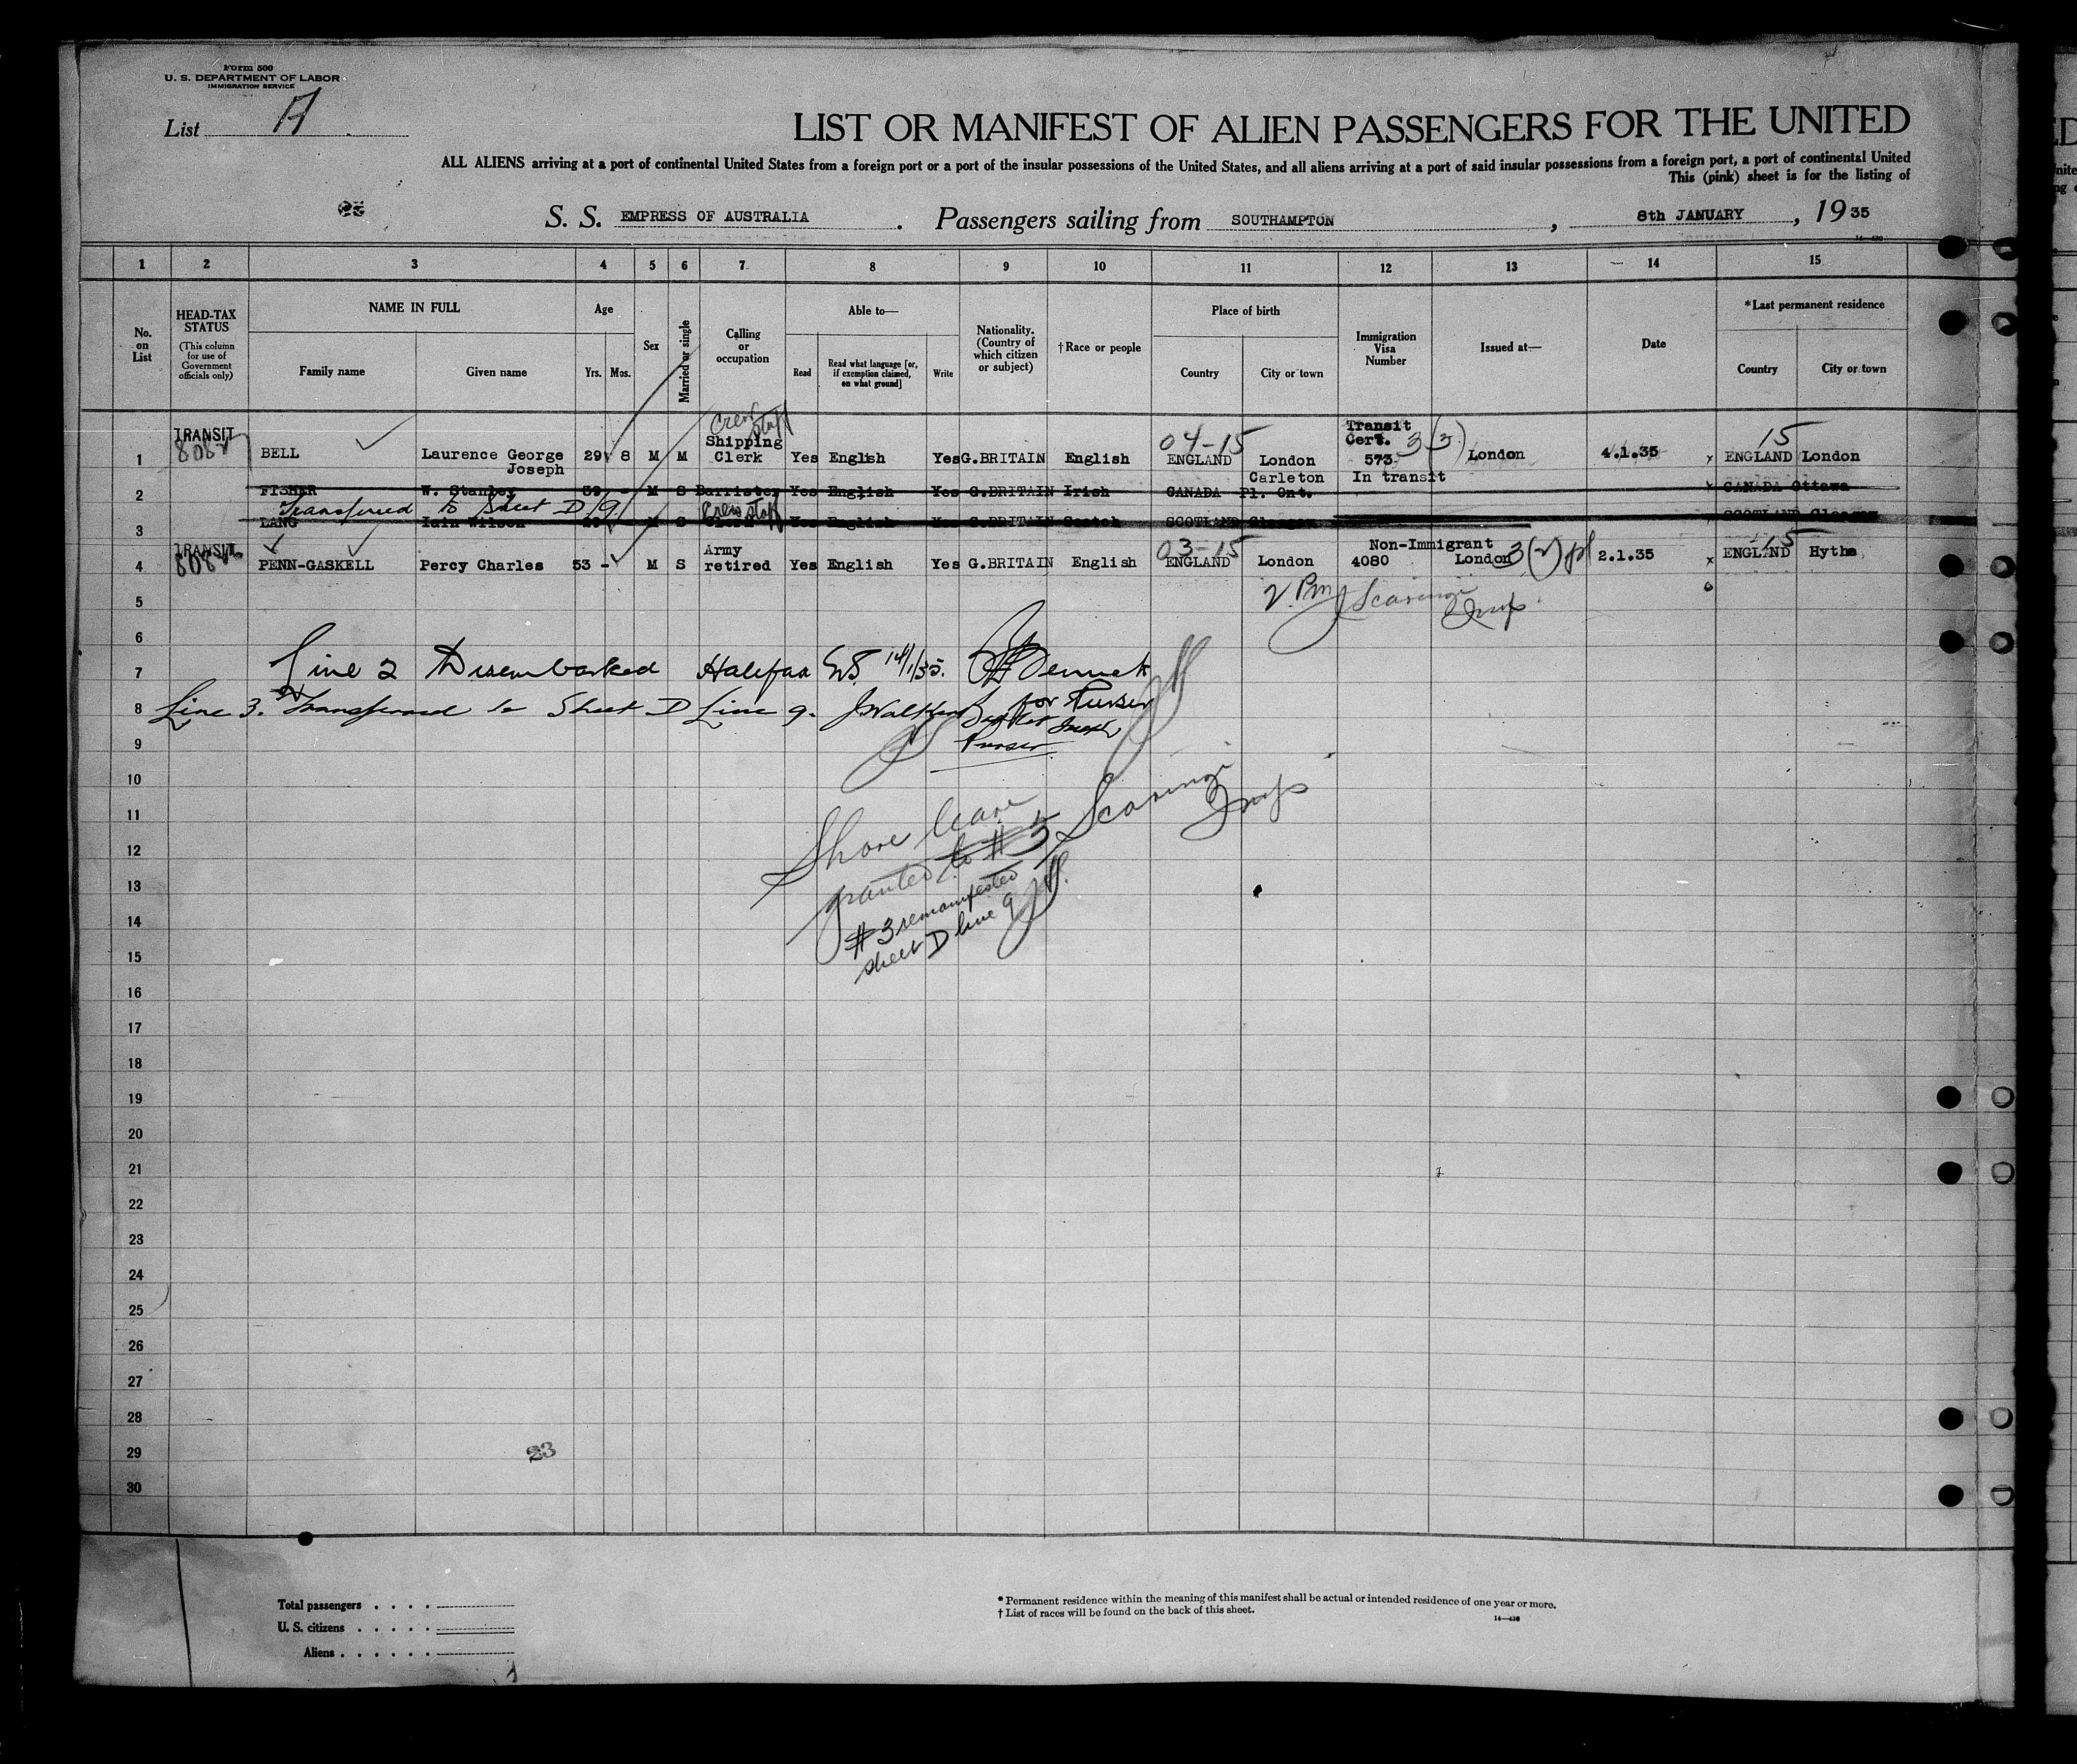 Form 500
U. S. DEPARTMENT OF LABOR
IMMIGRATION SERVICE
List A
LIST OR MANIFEST OF ALIEN PASSENGERS FOR THE UNITED
ALL ALIENS arriving at a port of continental United States from a foreign port or a port of the insular possessions of the United States, and all aliens arriving at a port of said insular possessions from a foreign port, a port of continental United
This (pink) sheet is for the listing of
S. S. EMPRESS OF AUSTRALIA . Passengers sailing from SOUTHAMPTON , 8th JANUARY , 19 35
1 2 3 4 5 6 7 8 9 10 11 12 13 14 15
No. on List
HEAD-TAX STATUS
(This column for use of Government officials only)
NAME IN FULL
Family name Given name
Age
Yrs. Mos.
Sex
Married or single
Calling or occupation
Able to—
Read Read what language [or, if exemption claimed, on what ground] Write
Nationality. (Country of which citizen or subject)
†Race or people
Place of birth
Country City or town
Immigration Visa Number
Issued at—
Date
*Last permanent residence
Country City or town
Crew Staff
1 TRANSIT BELL Laurence George Joseph 29 8 M M Shipping Clerk Yes English Yes G.BRITAIN English 04-15 ENGLAND London Transit Cert. 573 3(3) London 4.1.35 x 15 ENGLAND London
2 FISHER W. Stanley 39 - M S Barrister Yes English Yes G.BRITAIN Irish CANADA Carleton Pl. Ont. In transit x CANADA Ottawa
Transferred to Sheet D/9 Crew Staff
3 LANG Iain Wilson M S Clerk Yes English Yes G.BRITAIN Scotch SCOTLAND Glasgow SCOTLAND Glasgow
4 TRANSIT PENN-GASKELL Percy Charles 53 - M S Army retired Yes English Yes G.BRITAIN English 03-15 ENGLAND London Non-Immigrant 4080 London 3(2) 2.1.35 x 15 ENGLAND Hythe
5
6
7 Line 2 Disembarked Halifax 14/1/35.
for Purser
8 Line 3. Transferred to Sheet D Line 9.
Purser
9
10
11
12
13
14
15
Shore leave
granted to # 3
Scaringi
Insp
# 3 remanifested
sheet D line 9
16
17
18
19
20
21
22
23
24
25
26
27
28
29
23
30
Total passengers
U. S. citizens
Aliens
* Permanent residence within the meaning of this manifest shall be actual or intended residence of one year or more.
† List of races will be found on the back of this sheet.
14—430